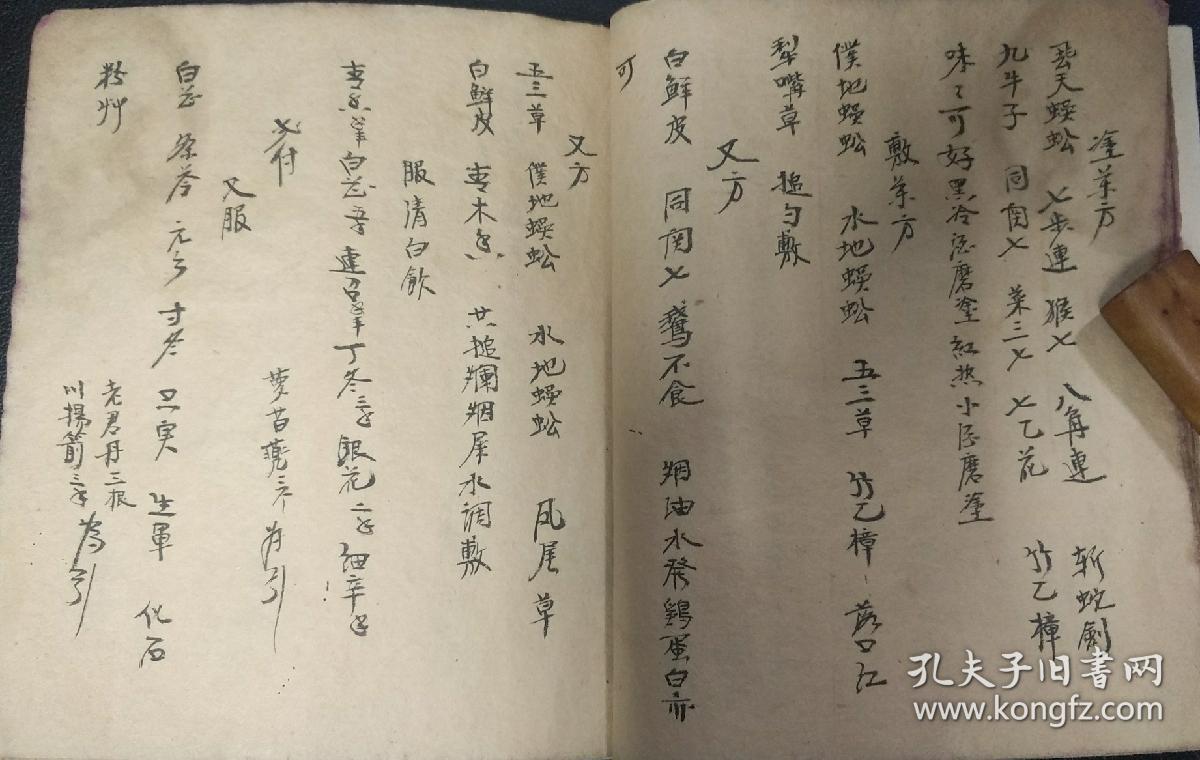 塗薬方
飛天蜈蚣 七步連 猴七 八角連 斬蛇劍
九牛子 同関七 菜三七 七乙花 竹乙樟
味々可好黑冷居磨塗紅热小居磨塗
敷薬方
僕地蜈蚣 水地蜈蚣 五三草 竹乙樟 落口江
犁嘴草 搥勻敷
又方
白鮮皮 同関七 鵞不食 烟油水発鷄蛋白亦
可
又方
五三草 僕地蜈蚣 水地蜈蚣 凤尾草
白鮮皮 青木香 共搥斕烟屎水調敷
服清白飲
白芷 連召 丁冬 銀花 細辛
为引
又服
白芷 条芩 元 寸冬 只実 生軍 化石
粉艸 老君丹三根 川楊箭 為引
孔夫子旧书网
www.kongfz.com